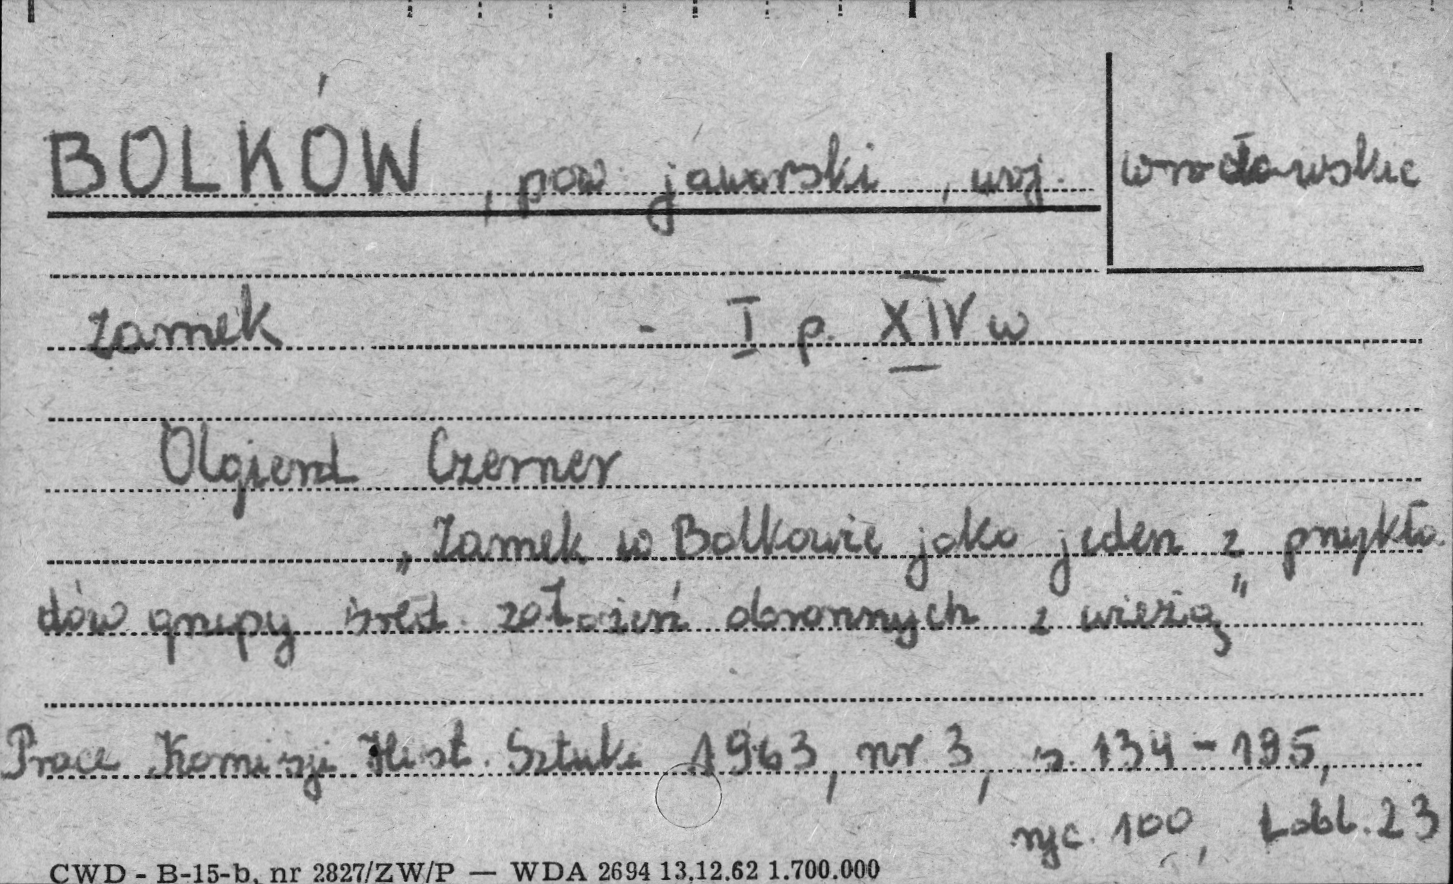 BOLKÓW, pow. jaworski, woj. wrocławskie
zamek - I p. XIV w
Olgierd Czerner
„Zamek w Bolkowie jako jeden z przykła-
dów grupy śred. założeń obronnych z wieżą"
Prace Komisji Hist. Sztuki 1963, nr 3, s. 134-195,
ryc. 100, tabl. 23
CWD - B-15-b, nr 2827/ZW/P — WDA 2694 13.12.62 1.700.000